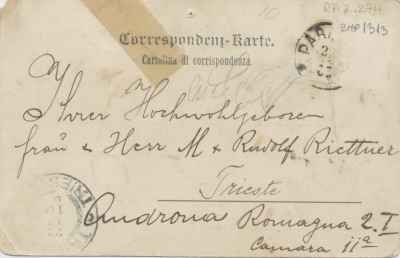 Correspondenz-Karte.
Cartolina di corrispondenza.
Ihrer Hochwohlgeboren
Frau & Herr M & Rudolf Riettner
Trieste
Androna Romagna 2. I
Camara 11ª